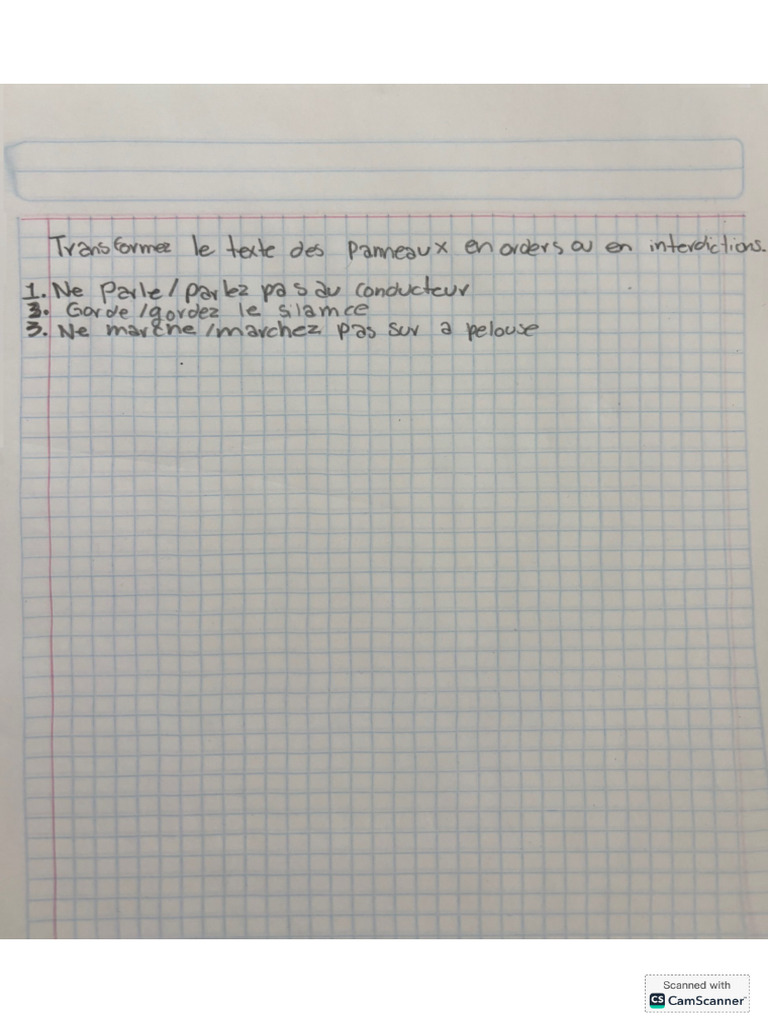 Transformez le texte des panneaux en orders ou en interdictions.
1. Ne Parle/parlez pas au conducteur
3. Garde/gardez le silamce
3. Ne marche/marchez pas sur a pelouse
Scanned with
CS CamScanner